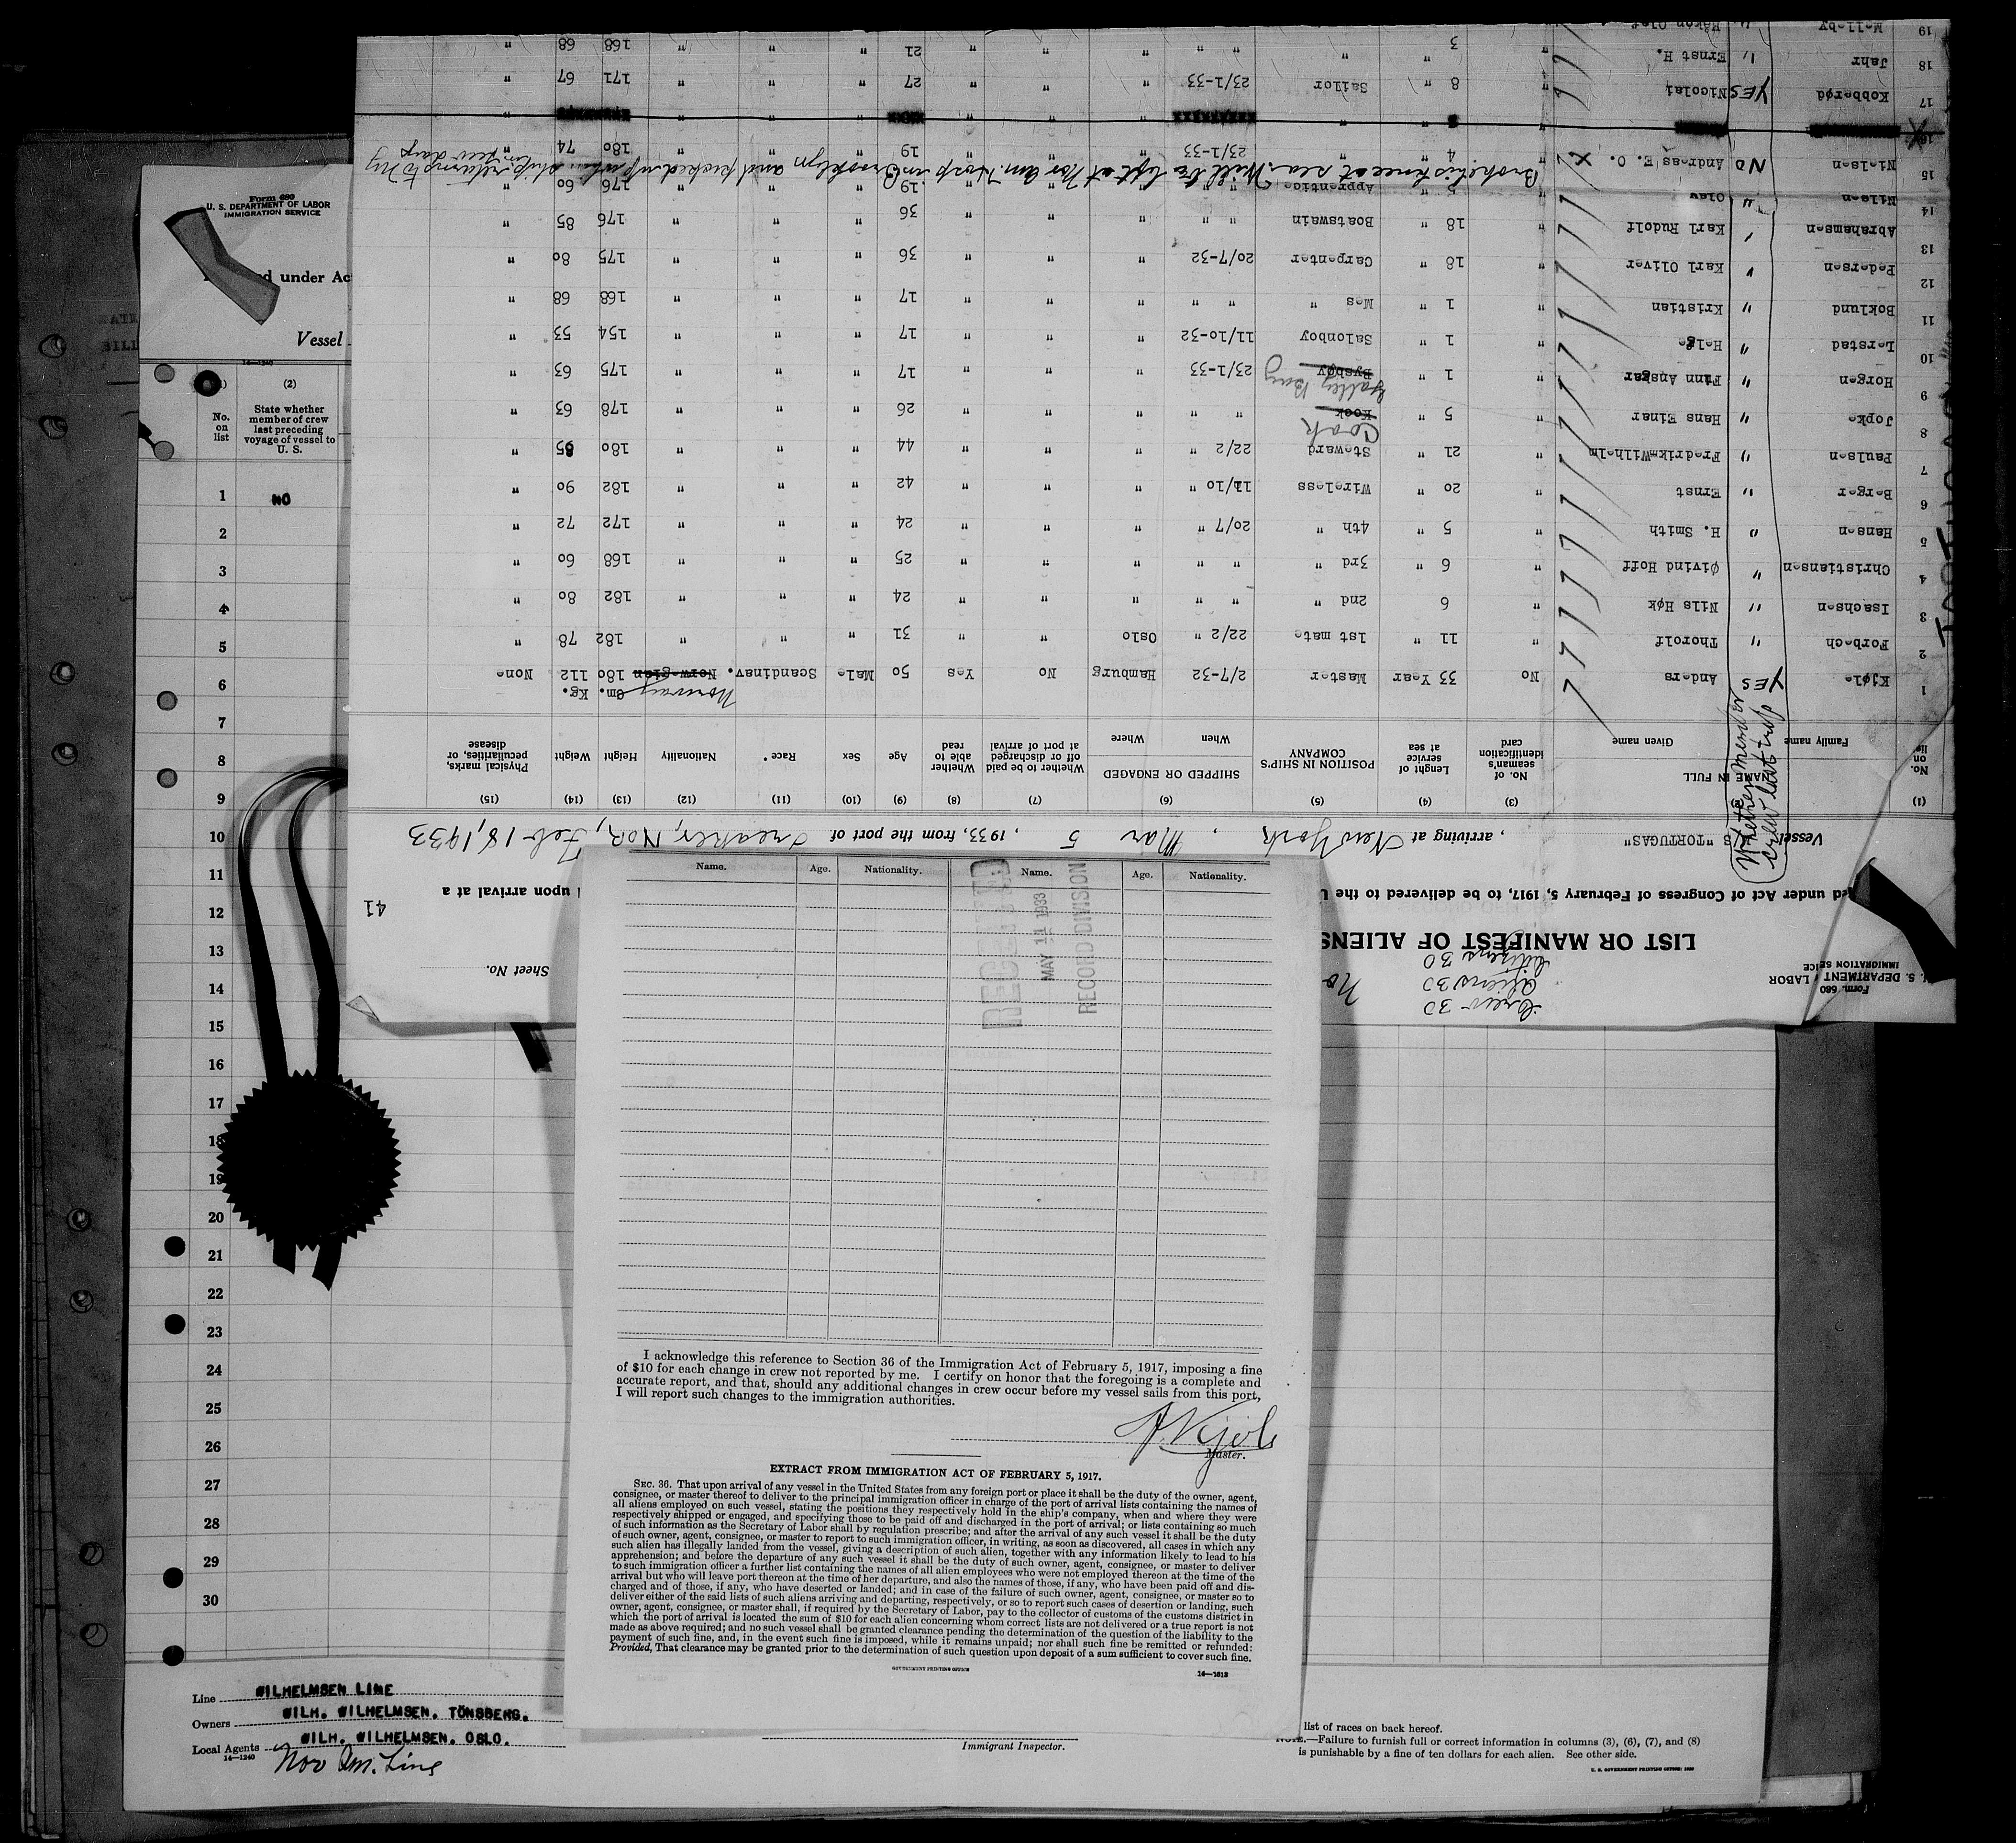 Form 680
U. S. DEPARTMENT OF LABOR
IMMIGRATION SERVICE
d under Act
Vessel
14—1240
(2)
No. on list
State whether member of crew last preceding voyage of vessel to U. S.
1 NO
2
3
4
5
6
7
8
9
10
11
12
13
14
15
16
17
18
19
20
21
22
23
24
25
26
27
28
29
30
Line WILHELMSEN LINE
Owners WILH. WILHELMSEN. TÖNSBERG.
Local Agents WILH. WILHELMSEN. OSLO.
14—1240
Nor Am. Line
Immigrant Inspector.
list of races on back hereof.
NOTE.—Failure to furnish full or correct information in columns (3), (6), (7), and (8)
is punishable by a fine of ten dollars for each alien. See other side.
U. S. GOVERNMENT PRINTING OFFICE: 1930
Form. 680
U. S. DEPARTMENT LABOR
IMMIGRATION SE ICE
Crew 30
aliens 30
Citizens 30
No
Sheet No.
LIST OR MANIFEST OF ALIENS
41
ed under Act of Congress of February 5, 1917, to be delivered to the U
upon arrival at a
Vessel M/S "TORTUGAS" , arriving at New York , Mar 5 , 1933, from the port of Preaker, Nor, Feb 18, 1933
Whether member crew last trip
(1) (3) (4) (5) (6) (7) (8) (9) (10) (11) (12) (13) (14) (15)
No. on list
NAME IN FULL
Family name Given name
No. of seaman's identification card
Lenght of service at sea
POSITION IN SHIP'S COMPANY
SHIPPED OR ENGAGED
When Where
Whether to be paid off or discharged at port of arrival
Whether able to read
Age Sex Race* Nationality Height Weight
Physical marks, peculiarities, or disease
Norway cm. Kg.
1 Kjøle YES Anders No 33 Year Master 2/7-32 Hamburg No Yes 50 Male Scandinav. Norwegian 180 112 None
2 Forbech " Thorolf " 11 " 1st mate 22/2 " Oslo " " 31 " " " 182 78 "
3 Isachsen " Nils Høk " 6 2nd " " " " " " 24 " " " 182 80 "
4 Christiansen " Øivind Hoff " 6 " 3rd " " " " " " 25 " " " 168 60 "
5 Hansen " H. Smith " 5 " 4th " 20/7 " " " " 24 " " " 172 72 "
6 Berger " Ernst " 20 " Wireless 11/10 " " " " 42 " " " 182 90 "
7 Paulsen " FredrikmWilhelm " 21 " Steward 22/2 " " " " 44 " " " 180 85 "
8 Jopke " Hans Einar " 5 " Kock Cook " " " " " 26 " " " 178 63 "
9 Horgen " Finn Ansgar " 1 " Bysbøy Galley Boy 23/1-33 " " " 17 " " " 175 63 "
10 Lerstad " Helge " 1 " Salonboy 11/10-32 " " " 17 " " " 154 53 "
11 Boklund " Kristian " 1 " Mes " " " " " " 17 " " " 168 68 "
12 Pedersen " Karl Oliver " 18 " Carpenter 20/7-32 " " " 36 " " " 175 80 "
13 Abrahamsen " Karl Rudolf " 18 " Boatswain " " " " " 36 " " " 176 85 "
14 Nilsen " Olav " 5 " Apprentice " " " " " 19 " " " 176 60 "
Broke his knee at sea. Will be left at Nor Am. Hosp in Brooklyn and picked up when ship returns to NY in few days
15 Nielsen NO Andreas E. O. X " 4 " " 23/1-33 " " " 19 " " " 180 74 "
16
17 Kobberød YES Nicolai " 8 " Sailor 23/1-33 " " " 27 " " " 171 67 "
18 Jahr " Ernst H. " 3 " " " " " " " 21 " " " 168 68 "
19 Melleby " Håkon Olaf
Name. Age. Nationality. Name. Age. Nationality.
RECEIVED
MAY 11 1933
RECORD DIVISION
I acknowledge this reference to Section 36 of the Immigration Act of February 5, 1917, imposing a fine
of $10 for each change in crew not reported by me. I certify on honor that the foregoing is a complete and
accurate report, and that, should any additional changes in crew occur before my vessel sails from this port,
I will report such changes to the immigration authorities.
A. Kjøle
Master.
EXTRACT FROM IMMIGRATION ACT OF FEBRUARY 5, 1917.
SEC. 36. That upon arrival of any vessel in the United States from any foreign port or place it shall be the duty of the owner, agent,
consignee, or master thereof to deliver to the principal immigration officer in charge of the port of arrival lists containing the names of
all aliens employed on such vessel, stating the positions they respectively hold in the ship's company, when and where they were
respectively shipped or engaged, and specifying those to be paid off and discharged in the port of arrival; or lists containing so much
of such information as the Secretary of Labor shall by regulation prescribe; and after the arrival of any such vessel it shall be the duty
of such owner, agent, consignee, or master to report to such immigration officer, in writing, as soon as discovered, all cases in which any
such alien has illegally landed from the vessel, giving a description of such alien, together with any information likely to lead to his
apprehension; and before the departure of any such vessel it shall be the duty of such owner, agent, consignee, or master to deliver
to such immigration officer a further list containing the names of all alien employees who were not employed thereon at the time of the
arrival but who will leave port thereon at the time of her departure, and also the names of those, if any, who have been paid off and dis-
charged and of those, if any, who have deserted or landed; and in case of the failure of such owner, agent, consignee, or master so to
deliver either of the said lists of such aliens arriving and departing, respectively, or so to report such cases of desertion or landing, such
owner, agent, consignee, or master shall, if required by the Secretary of Labor, pay to the collector of customs of the customs district in
which the port of arrival is located the sum of $10 for each alien concerning whom correct lists are not delivered or a true report is not
made as above required; and no such vessel shall be granted clearance pending the determination of the question of the liability to the
payment of such fine, and, in the event such fine is imposed, while it remains unpaid; nor shall such fine be remitted or refunded:
Provided, That clearance may be granted prior to the determination of such question upon deposit of a sum sufficient to cover such fine.
GOVERNMENT PRINTING OFFICE
14—1512